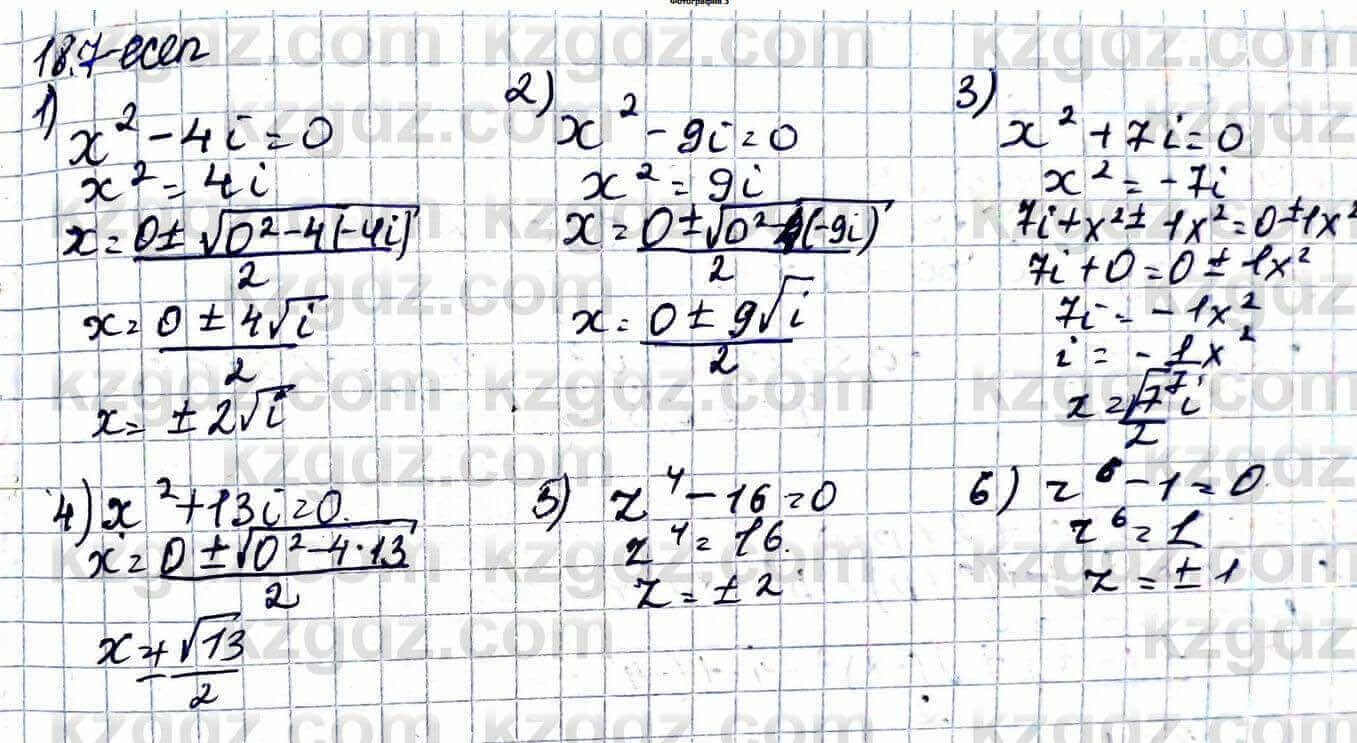 Фотография 3
18.7-есеп
1)
x² - 4i = 0
x² = 4i
x = (0 ± √(0² - 4(-4i)))/2
x = (0 ± 4√i)/2
x = ±2√i
2)
x² - 9i = 0
x² = 9i
x = (0 ± √(0² - 4(-9i)))/2
x = (0 ± 9√i)/2
3)
x² + 7i = 0
x² = -7i
7i + x² ± 1x² = 0 ± 1x²
7i + 0 = 0 ± 1x²
7i = -1x²
i = -1x²/7
x = √7i/2
4) x² + 13i = 0.
x = (0 ± √(0² - 4·13))/2
x = ± √13/2
5) z⁴ - 16 = 0
z⁴ = 16.
z = ± 2
6) z⁶ - 1 = 0.
z⁶ = 1
z = ± 1
kzgdz.com